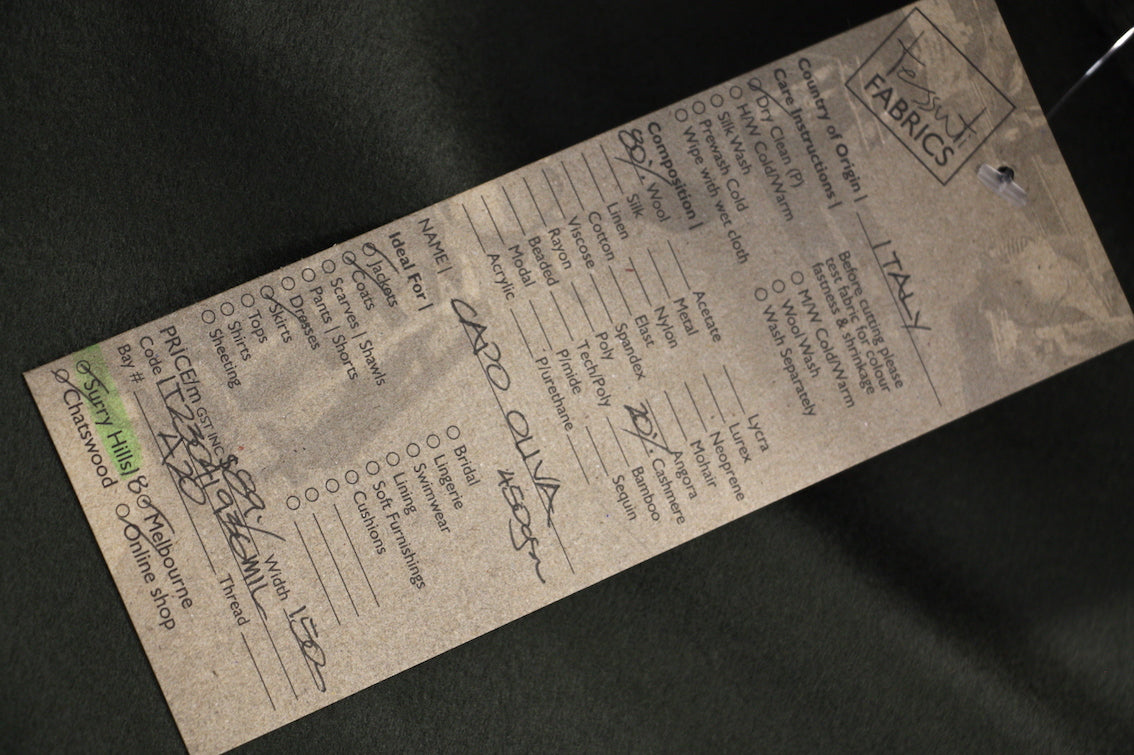 tessuti
FABRICS
Country of Origin | ITALY
Care Instructions |
Before cutting please
test fabric for colour
fastness & shrinkage
Dry Clean (P)
H/W Cold/Warm
Silk Wash
Prewash Cold
Wipe with wet cloth
M/W Cold/Warm
Wool Wash
Wash Separately
Composition |
80% Wool
Silk
Linen
Cotton
Viscose
Rayon
Beaded
Modal
Acrylic
Acetate
Metal
Nylon
Elast
Spandex
Poly
Tech/Poly
P/mide
P/urethane
Lycra
Lurex
Neoprene
Mohair
Angora
20% Cashmere
Bamboo
Sequin
NAME | CAPO OLIVA
450gsm
Ideal For |
Jackets
Coats
Scarves | Shawls
Pants | Shorts
Dresses
Skirts
Tops
Shirts
Sheeting
Bridal
Lingerie
Swimwear
Lining
Soft Furnishings
Cushions
PRICE/m GST INC Width 150
Code |
Bay # A20 Thread
Surry Hills | 8 Melbourne
Chatswood Online shop